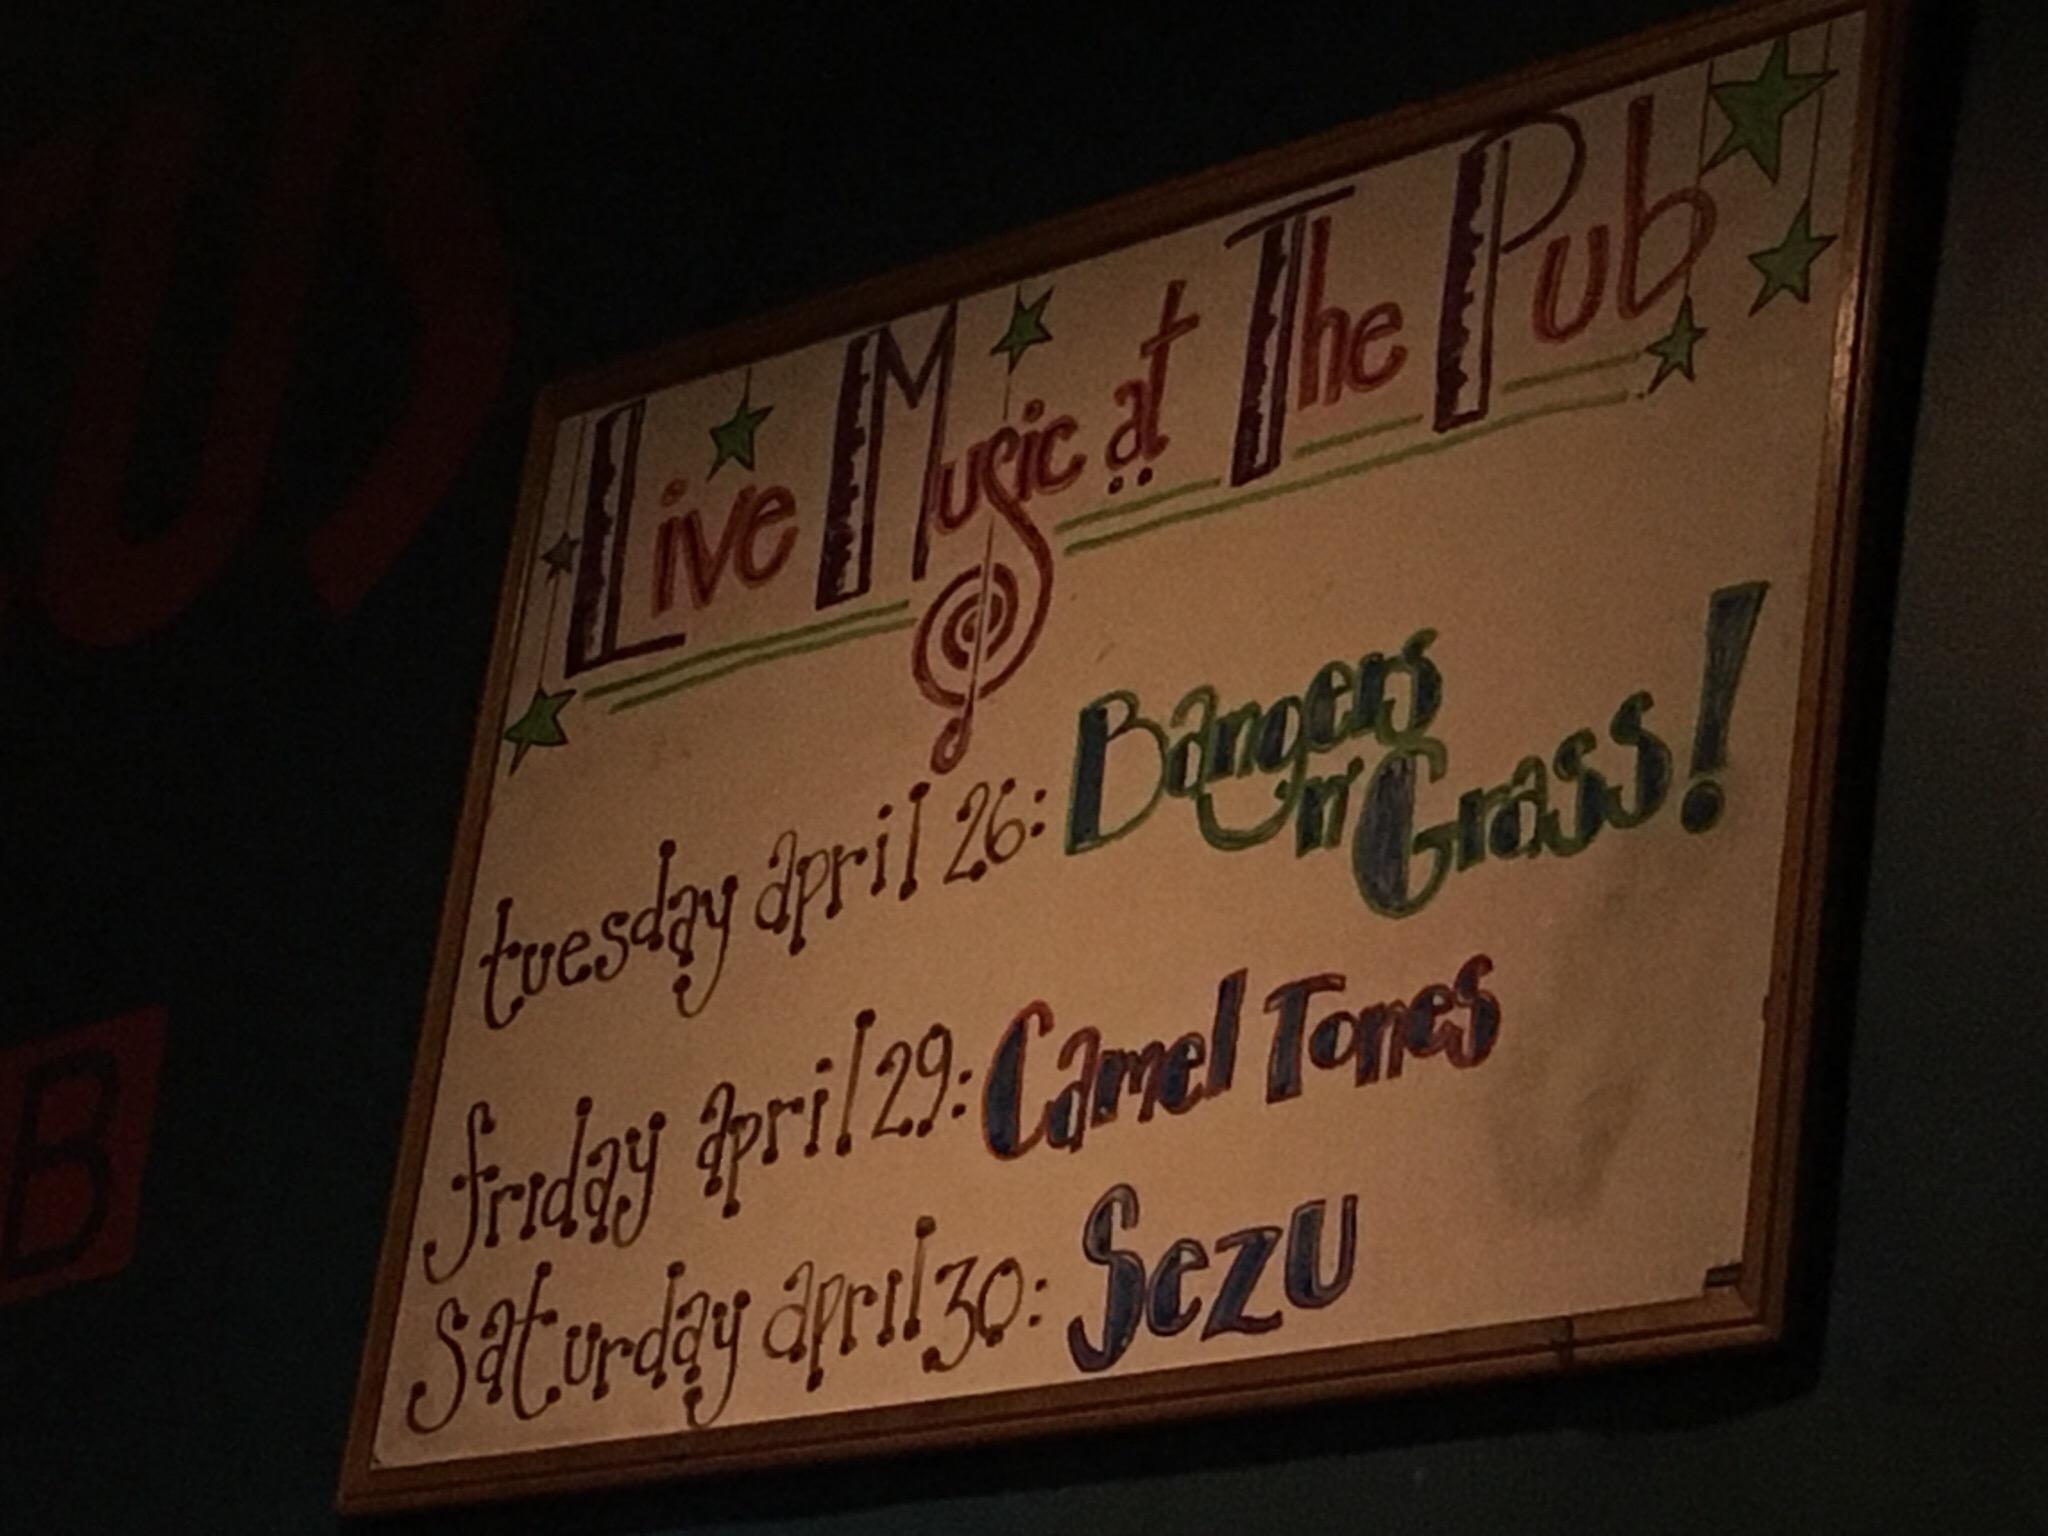 Live Music at The Pub
tuesday april 26: Bangers n' Grass!
friday april 29: Camel Tones
saturday april 30: Sezu
B